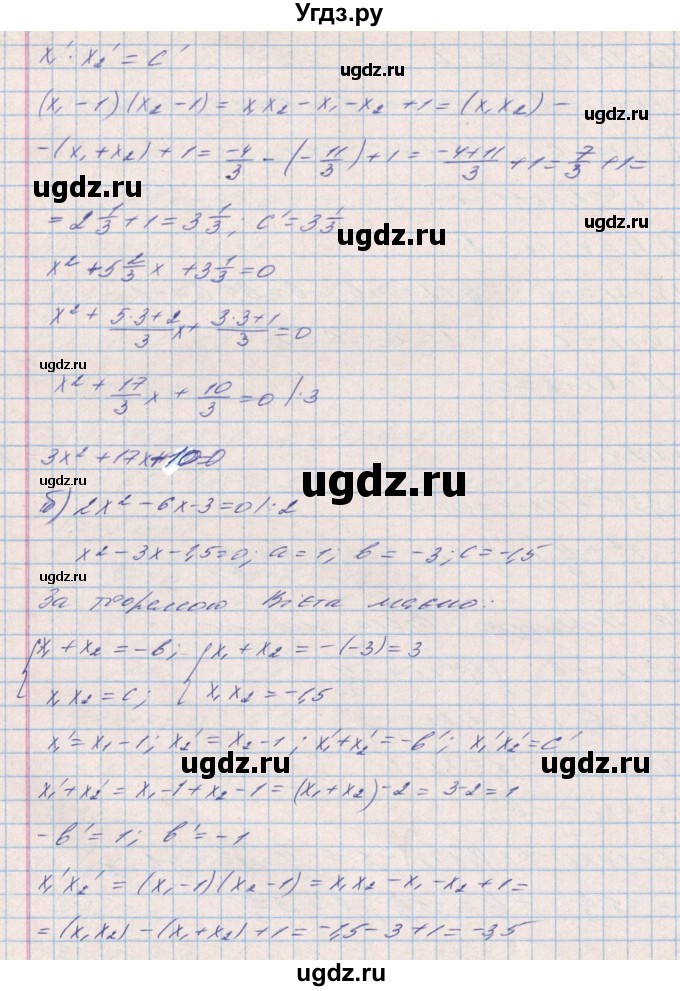 Угдз.ру
x₁′ · x₂′ = c′
(x₁ – 1)(x₂ – 1) = x₁x₂ – x₁ – x₂ + 1 = (x₁x₂) –
ugdz.ru
– (x₁ + x₂) + 1 = –4/3 – (–11/3) + 1 = (–4 + 11)/3 + 1 = 7/3 + 1 =
ugdz.ru ugdz.ru
= 2 1/3 + 1 = 3 1/3; c′ = 3 1/3
ugdz.ru
x² + 5 2/3 x + 3 1/3 = 0
x² + (5·3+2)/3 x + (3·3+1)/3 = 0
ugdz.ru ugdz.ru
x² + 17/3 x + 10/3 = 0 / · 3
3x² + 17x + 10 = 0
ugdz.ru ugdz.ru
б) 2x² – 6x – 3 = 0 / : 2
x² – 3x – 1,5 = 0; a = 1; b = –3; c = –1,5
ugdz.ru
За теоремою Вієта маємо:
ugdz.ru
{ x₁ + x₂ = –b; { x₁ + x₂ = –(–3) = 3
x₁x₂ = c; x₁x₂ = –1,5
ugdz.ru
x₁′ = x₁ – 1; x₂′ = x₂ – 1; x₁′ + x₂′ = –b′; x₁′x₂′ = c′
ugdz.ru ugdz.ru
x₁′ + x₂′ = x₁ – 1 + x₂ – 1 = (x₁ + x₂) – 2 = 3 – 2 = 1
ugdz.ru
– b′ = 1; b′ = –1
x₁′x₂′ = (x₁ – 1)(x₂ – 1) = x₁x₂ – x₁ – x₂ + 1 =
ugdz.ru ugdz.ru
= (x₁x₂) – (x₁ + x₂) + 1 = –1,5 – 3 + 1 = –3,5
ugdz.ru